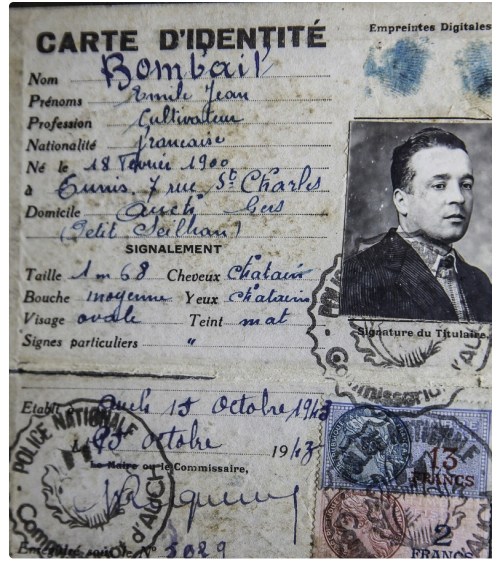 Empreintes Digitales
CARTE D'IDENTITÉ
Nom Bombail
Prénoms Emile Jean
Profession Cultivateur
Nationalité française
Né le 18 Février 1900
à Tunis. 7 rue St Charles
Domicile Auch Gers
(Petit Seilhan)
SIGNALEMENT
Taille 1m68 Cheveux Chatain
Bouche moyenne Yeux Chatains
Visage ovale Teint mat
Signes particuliers "
Signature du Titulaire,
Etabli Auch 15 Octobre 1943
octobre 1943
Le Maire ou le Commissaire,
POLICE NATIONALE
d'AUCH
13
FRANCS
2
FRANCS
N° 3029